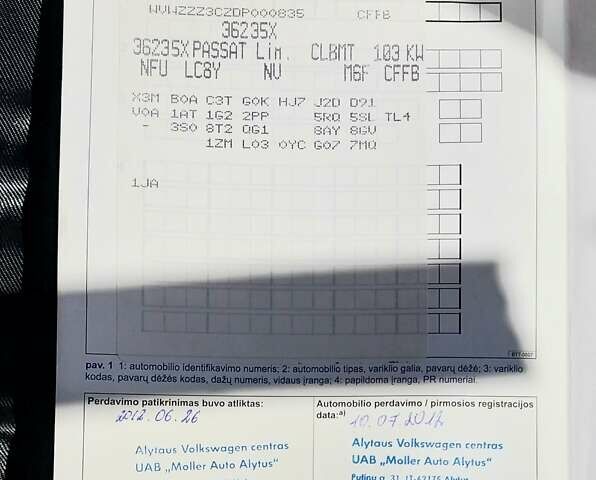 WVWZZZ3CZDP000835 CFFB
36235X
36235X PASSAT Lim. CLBMT 103 KW
NFU LC8Y NV M6F CFFB
X3M B0A C3T G0K HJ7 J2D D91
V0A 1AT 1G2 2PP 5RQ 5SL TL4
- 3S0 8T2 QG1 8AY 8GV
1ZM L03 0YC G07 7MQ
1JA
pav. 1 1: automobilio identifikavimo numeris; 2: automobilio tipas, variklio galia, pavarų dėžė; 3: variklio
kodas, pavarų dėžės kodas, dažų numeris, vidaus įranga; 4: papildoma įranga, PR numeriai.
Perdavimo patikrinimas buvo atliktas:
2012.06.26
Alytaus Volkswagen centras
UAB „Moller Auto Alytus"
Automobilio perdavimo / pirmosios registracijos
data:a)
10.07.2012
Alytaus Volkswagen centras
UAB „Moller Auto Alytus"